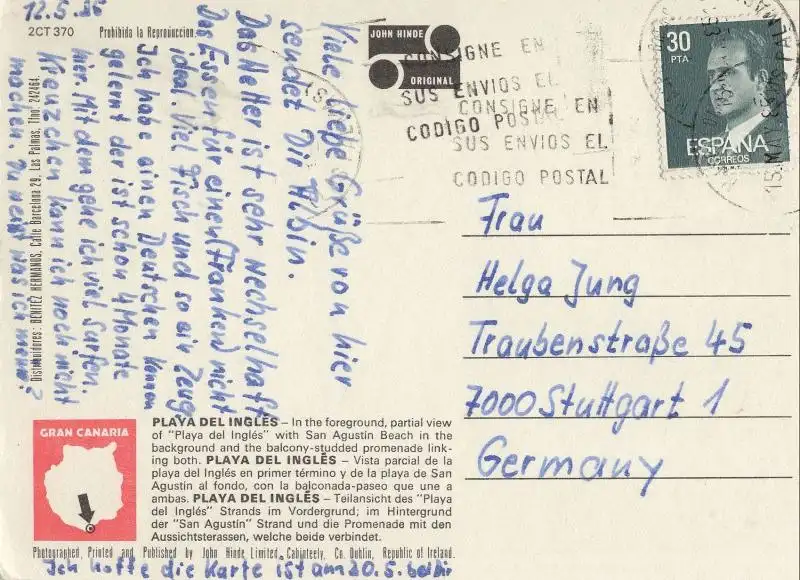 12.5.86
2CT 370
Prohibida la Reproduccion
Viele liebe Grüße von hier
sendet Dir Albin.
Das Wetter ist sehr wechselhaft
Das Essen für einen (Franken) nicht
ideal. Viel Fisch und so ein Zeug
Ich habe einen Deutschen kennen
gelernt der ist schon 4 Monate
hier. Mit dem gehe ich viel surfen.
Kreuzchen kann ich noch nicht
machen. Du weist was ich meine?
Distribuidores: BENITEZ HERMANOS, Calle Barcelona 29, Las Palmas, Tfno. 242464.
JOHN HINDE
ORIGINAL
CONSIGNE EN
SUS ENVIOS EL
CODIGO POSTAL
CONSIGNE EN
SUS ENVIOS EL
CODIGO POSTAL
30
PTA
ESPAÑA
CORREOS
F.N.M.T.
15 MAY
Frau
Helga Jung
Traubenstraße 45
7000 Stuttgart 1
Germany
GRAN CANARIA
PLAYA DEL INGLÉS – In the foreground, partial view
of "Playa del Inglés" with San Agustín Beach in the
background and the balcony-studded promenade link-
ing both. PLAYA DEL INGLÉS – Vista parcial de la
playa del Inglés en primer término y de la playa de San
Agustín al fondo, con la balconada-paseo que une a
ambas. PLAYA DEL INGLÉS – Teilansicht des "Playa
del Inglés" Strands im Vordergrund; im Hintergrund
der "San Agustín" Strand und die Promenade mit den
Aussichtsterassen, welche beide verbindet.
Photographed, Printed and Published by John Hinde Limited, Cabinteely, Co. Dublin, Republic of Ireland.
Ich hoffe die Karte ist am 20.5. bei Dir